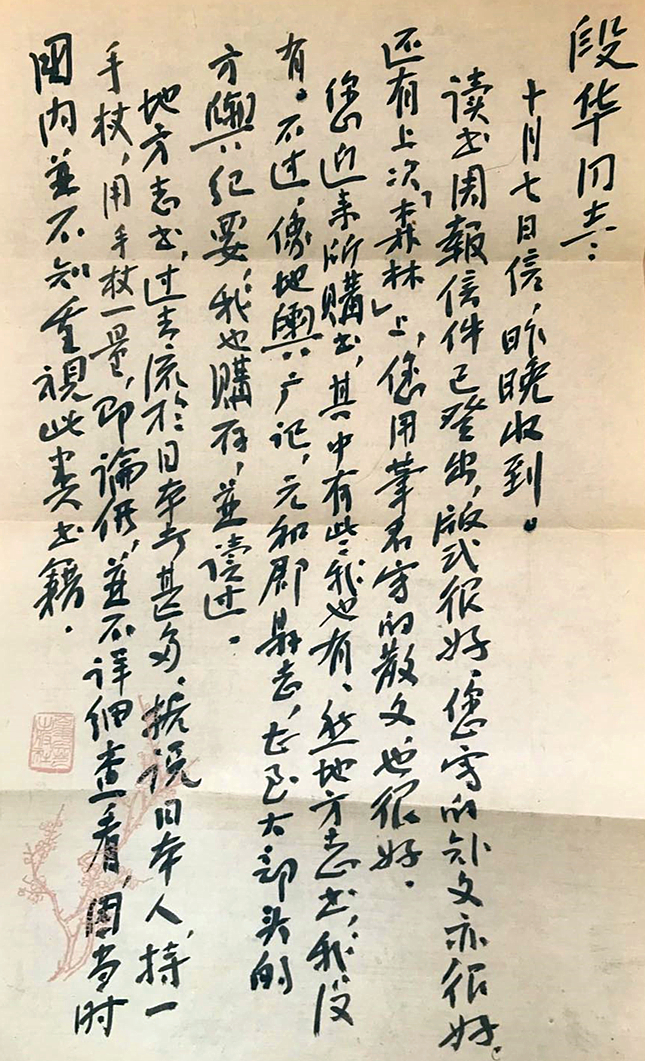 段华同志：
十月七日信，昨晚收到。
读书周報信件已登出，版式很好，您写的补文亦很好。
还有上次「森林」上，您用筆名写的散文，也很好。
您近来所購书，其中有些我也有，然地方志书，我没
有。不过，像地輿广记，元和郡县志，甚至大部头的
方輿纪要，我也購存，並读过。
地方志书，过去流於日本者甚多，据说日本人，持一
手杖，用手杖一量，即論價，並不详细查看，因当时
國内並不知重視此类书籍。